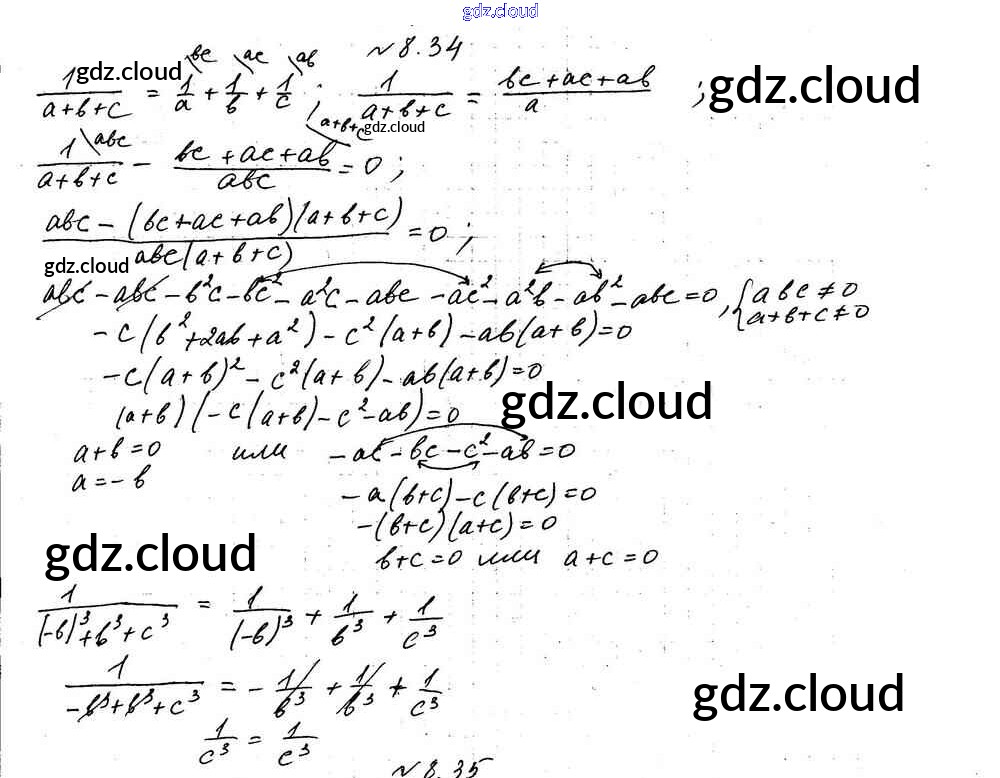 gdz.cloud
№ 8.34
1/(a+b+c) = 1/a \bc + 1/b \ac + 1/c \ab ; 1/(a+b+c) = (bc+ac+ab)/a ;
gdz.cloud gdz.cloud
1\abc/(a+b+c) − (bc+ac+ab)\a+b+c/abc = 0 ;
gdz.cloud
(abc − (bc+ac+ab)(a+b+c))/(abc(a+b+c)) = 0 ;
gdz.cloud
abc − abc − b²c − bc² − a²c − abc − ac² − a²b − ab² − abc = 0, { abc ≠ 0
a+b+c ≠ 0
−c(b²+2ab+a²) − c²(a+b) − ab(a+b) = 0
−c(a+b)² − c²(a+b) − ab(a+b) = 0
gdz.cloud
(a+b)(−c(a+b) − c² − ab) = 0
a+b=0 или −ac − bc − c² − ab = 0
a = −b
−a(b+c) − c(b+c) = 0
−(b+c)(a+c) = 0
gdz.cloud
b+c=0 или a+c=0
1/((−b)³+b³+c³) = 1/(−b)³ + 1/b³ + 1/c³
1/(−b³+b³+c³) = −1/b³ + 1/b³ + 1/c³
gdz.cloud
1/c³ = 1/c³
№ 8.35